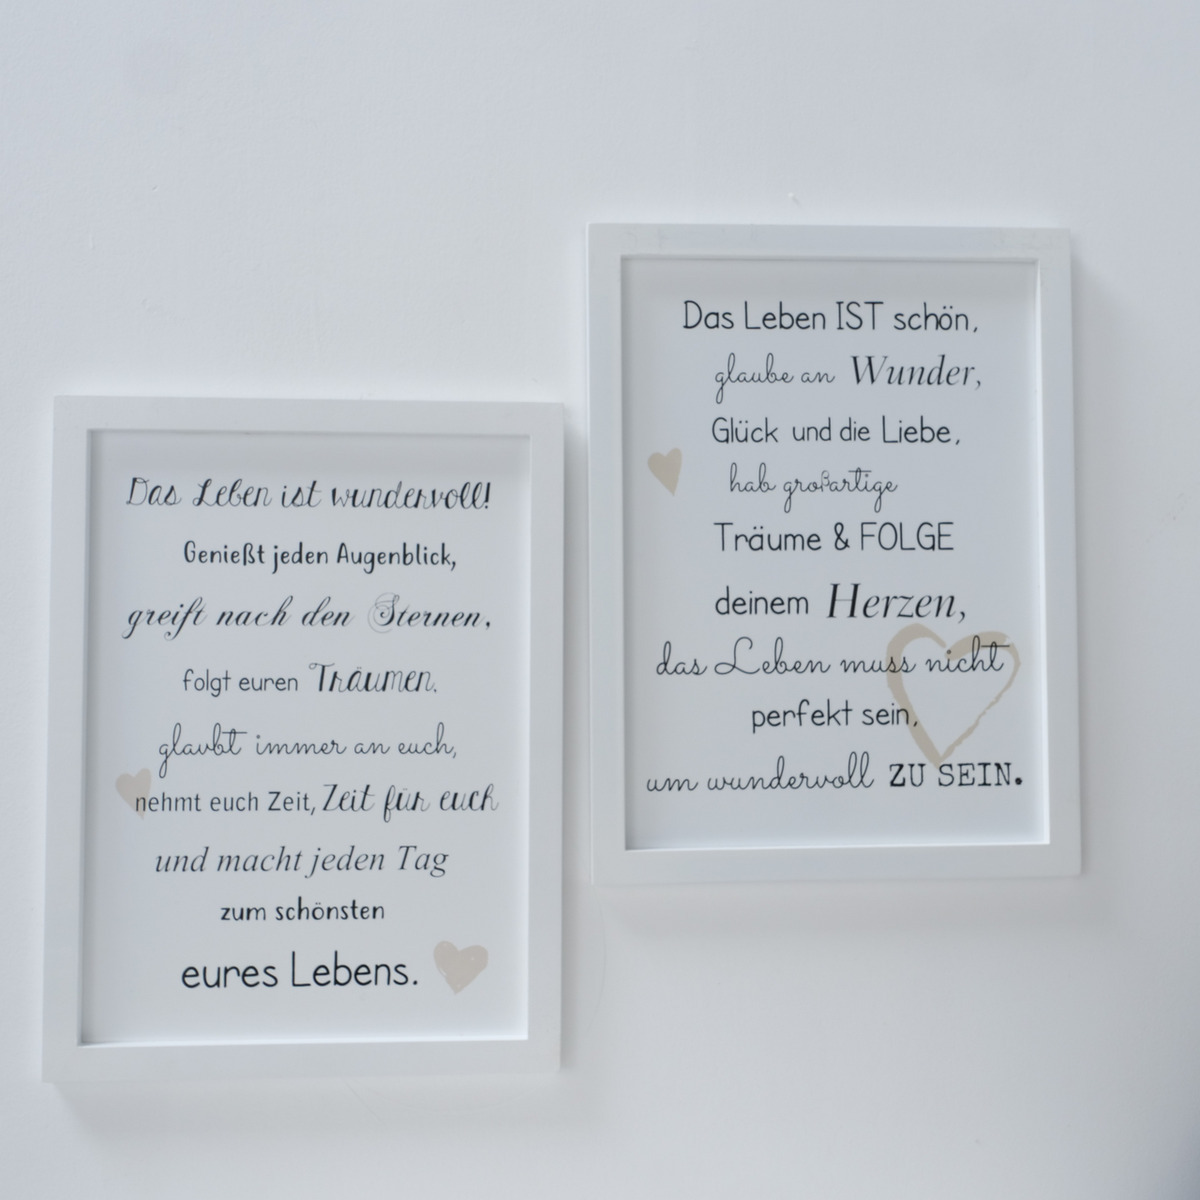 Das Leben ist wundervoll!
Genießt jeden Augenblick,
greift nach den Sternen,
folgt euren Träumen,
glaubt immer an euch,
nehmt euch Zeit, Zeit für euch
und macht jeden Tag
zum schönsten
eures Lebens.
Das Leben IST schön,
glaube an Wunder,
Glück und die Liebe,
hab großartige
Träume & FOLGE
deinem Herzen,
das Leben muss nicht
perfekt sein,
um wundervoll ZU SEIN.